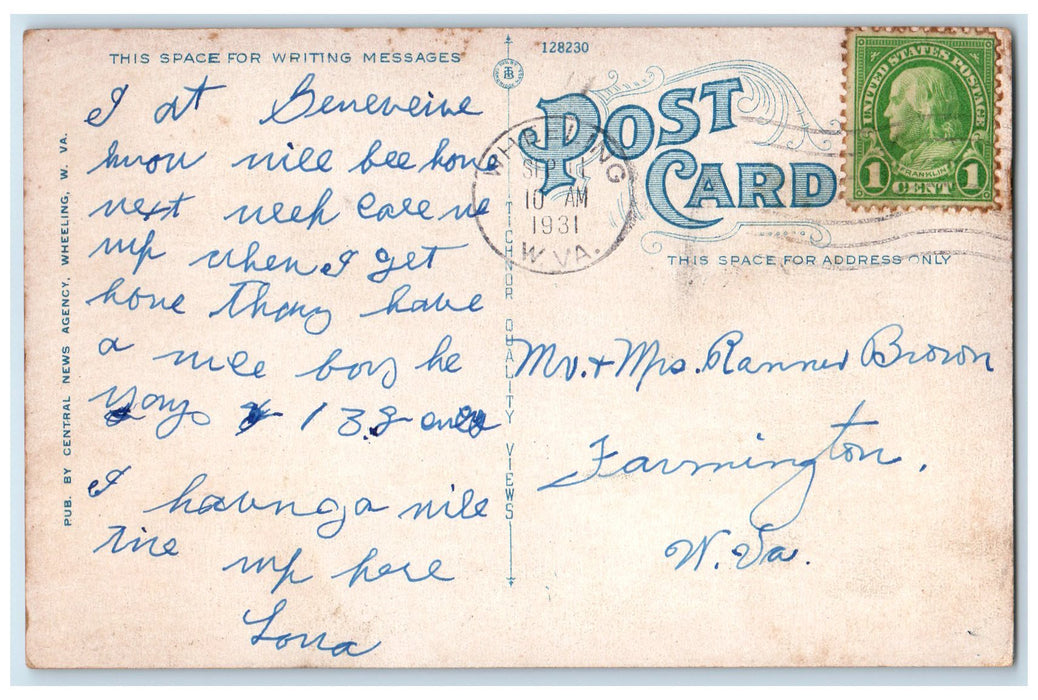 THIS SPACE FOR WRITING MESSAGES
I at Geneveive
know will bee home
next week Call me
up when I get
home Thay have
a nice boy he
says 138 only
I having a nice
time
up here
Lona
PUB. BY CENTRAL NEWS AGENCY, WHEELING, W. VA.
TICHNOR QUALITY VIEWS
128230
POST CARD
WHEELING
10 AM
1931
W. VA.
UNITED STATES POSTAGE
FRANKLIN
1 CENT 1
THIS SPACE FOR ADDRESS ONLY
Mr. + Mrs. Ranner Brown
Farmington,
W. Va.